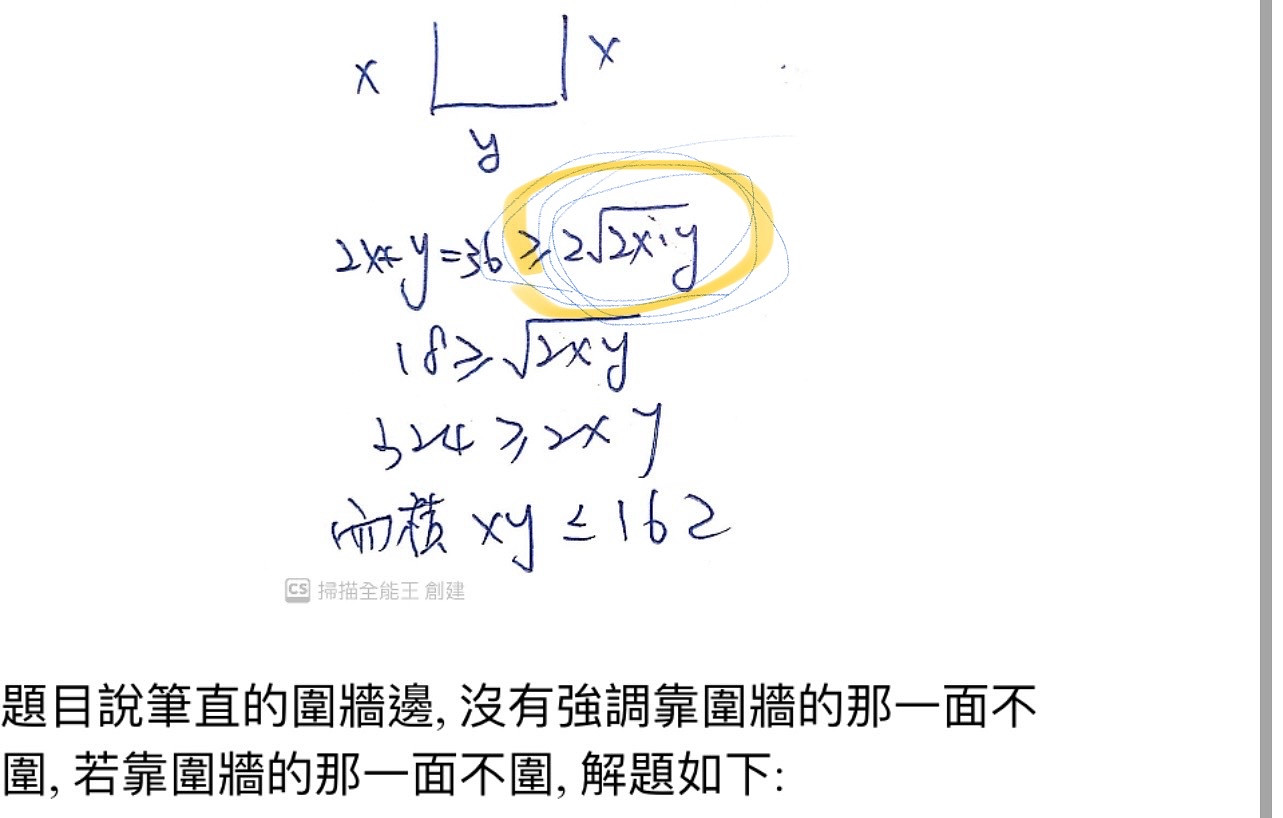 x x
y
2x+y=36≥2√2x·y
18≥√2xy
324≥2xy
面積 xy≤162
CS 掃描全能王 創建
題目說筆直的圍牆邊, 沒有強調靠圍牆的那一面不
圍, 若靠圍牆的那一面不圍, 解題如下: